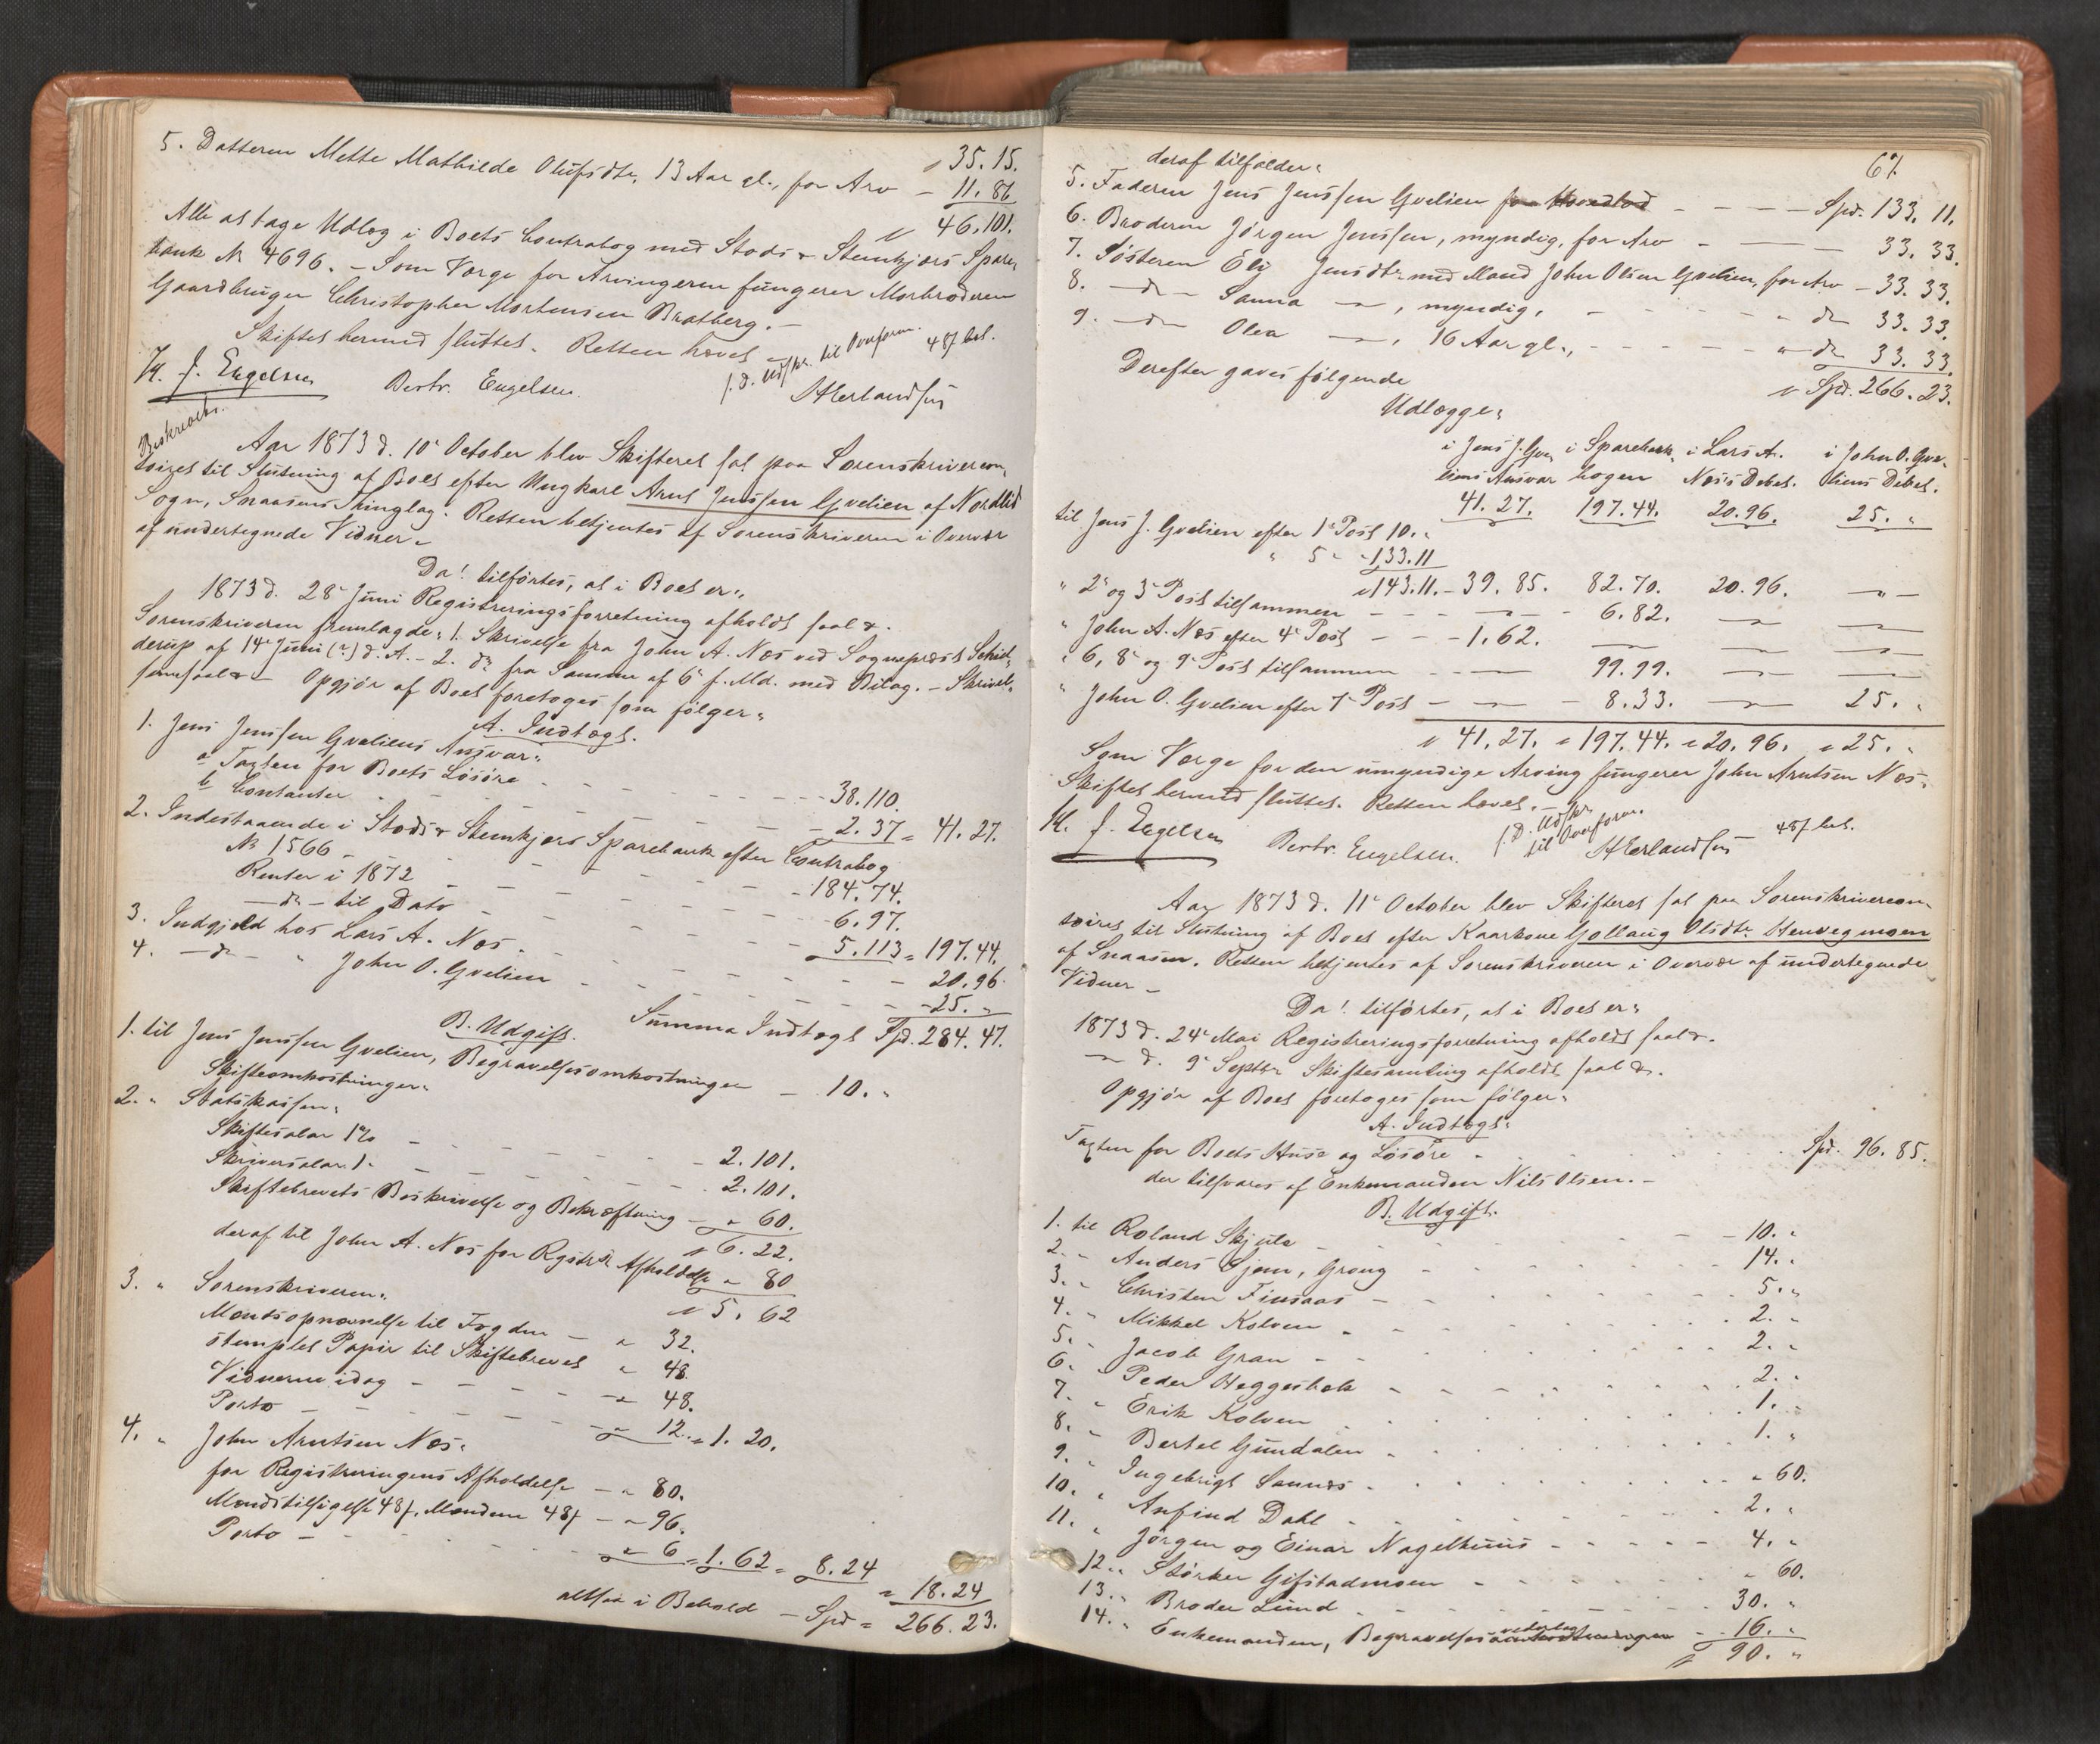 " 35. 15.
5. Datteren Mette Mathilde Olufsdtr, 13 Aar gl., for Arv — 11. 86
" 46. 101.
Alle at tage Udlæg i Boets Contrabog med Stods & Stenkjærs Spare-
bank No 4696. – Som Værge for Arvingerne fungerer Morbroderen
Gaardbruger Christopher Mortensen Bratberg. –
Skiftet hermed sluttet. Retten hævet –
f. D. Udskr. til Overform. 48 f bet.
K. J. Engelsen Bertr. Engelsen. AErlandsen
Beskrevet.
Aar 1873 d. 10de October blev Skifteret sat paa Sorenskrivercon-
toiret til Slutning af Boet efter Ungkarl Arnt Jenssen Gvelien af Nordlid
Sogn, Snaasens Thinglag. Retten betjentes af Sorenskriveren i Overvær
af undertegnede Vidner –
Da! tilførtes, at i Boet er:
1873 d. 28de Juni Registreringsforretning afholdt saal. &.
Sorenskriveren fremlagde: 1. Skrivelse fra John A. Næs ved Sognepræst Schiel-
derup af 14de Juni (?) d. A. – 2. do fra Samme af 6te f. Md. med Bilag. – Skrivel-
serne saal. & – Opgjør af Boet foretoges som følger:
A. Indtægt.
1. Jens Jenssen Gveliens Ansvar:
a Taxten for Boets Løsøre - - - - 38. 110.
b Contanter - - - - 2. 37 = 41. 27.
2. Indestaaende i Stods & Stenkjærs Sparebank efter Contrabog
No 1566 - - - - 184. 74.
Renter i 1872 - - - - 6. 97.
— do — til Dato - - - - 5. 113 = 197. 44.
3. Indgjeld hos Lars A. Næs - - - - 20. 96.
4. — do — " John O. Gvelien - - - - 25. "
Summa Indtægt Spd. 284. 47.
B. Udgift.
1. til Jens Jenssen Gvelien, Begravelsesomkostninger — 10. "
Skifteomkostninger:
2. " Statskassen:
Skiftesalær 1% - - - - 2. 101.
Skriversalær 1 - - - - 2. 101.
Skiftebrevets Beskrivelse og Bekræftning - " 60.
" 6. 22.
deraf til John A. Næs for Regstr. Afholdelse " 80
" 5. 62
3. " Sorenskriveren:
Mændsopnævnelse til Fogden — " 32.
stemplet Papir til Skiftebrevet " 48.
Vidnerne idag - - - - " 48.
Porto - - - - " 12. = 1. 20.
4. " John Arntsen Næs:
for Registreringens Afholdelse — " 80.
Mændstilsigelse 48 f, Mændene 48 f — " 96.
Porto - - - - " 6 = 1. 62 = 8. 24
= 18. 24
altsaa i Behold — Spd = 266. 23.
67.
deraf tilfalder:
5. Faderen Jens Jenssen Gvelien for Hovedlod - - - - Spd. 133. 11.
6. Broderen Jørgen Jenssen, myndig, for Arv - - - 33. 33.
7. Søsteren Eli Jensdtr. med Mand John Olsen Gvelien, for Arv - 33. 33.
8. — do — Sanna — " —, myndig, - - - " do 33. 33.
9. — do — Olea — " —, 16 Aar gl., - - - " do 33. 33.
" Spd. 266. 23.
Derefter gaves følgende
Udlægge:
i Jens J. Gve- i Sparebank- i Lars A. i John O. Gve-
liens Ansvar bogen Næs's Debet. liens Debet.
41. 27. 197. 44. 20. 96. 25. "
til Jens J. Gvelien efter 1ste Post 10. "
" 5 " " 133. 11
" 143. 11. — 39. 85. 82. 70. 20. 96. — " —
" 2de og 3de Post tilsammen - - - — " — 6. 82. — " — — " —
" John A. Næs efter 4de Post - - - 1. 62. — " — — " — — " —
" 6, 8de og 9de Post tilsammen - - - — " — 99. 99. — " — — " —
" John O. Gvelien efter 7de Post - - — " — - 8. 33. — " — 25. "
" 41. 27. " 197. 44. " 20. 96. " 25. "
Som Værge for den umyndige Arving fungerer John Arntsen Næs.
Skiftet hermed sluttet. Retten hævet. –
f. D. Udskr. til Overform. 48 f bet.
K. J. Engelsen Bertr. Engelsen. AErlandsen
Aar 1873 d. 11te October blev Skifteret sat paa Sorenskrivercon-
toiret til Slutning af Boet efter Kaarkone Gollaug Olsdtr. Henvegmoen
af Snaasen. Retten betjentes af Sorenskriveren i Overvær af undertegnede
Vidner –
Da! tilførtes, at i Boet er:
1873 d. 24de Mai Registreringsforretning afholdt saal. &.
— " — d. 9de Septbr Skiftesamling afholdt saal. &.
Opgjør af Boet foretoges som følger:
A. Indtægt:
Taxten for Boets Huse og Løsøre - - - - Spd. 96. 85.
der tilsvares af Enkemanden Nils Olsen. –
B. Udgift.
1. til Roland Skjule - - - - 10. "
2. " Anders Gjem, Grong - - - - 14. "
3. " Christen Finsaas - - - - 5. "
4. " Mikkel Kolven - - - - 2. "
5. " Jacob Gran - - - - 2. "
6. " Peder Heggesbak - - - - 2. "
7. " Erik Kolven - - - - 1. "
8. " Bertel Gundalen - - - - 1. "
9. " Ingebrigt Sannæs - - - - " 60.
10. " Anfind Dahl - - - - 2. "
11. " Jørgen og Einar Nagelhuus - - - - 4. "
12. " Størker Gifstadmoen - - - - " 60.
13. " Broder Lund - - - - 30. "
14. " Enkemanden, Begravelsesomkostninger - - 16. "
" 90. "